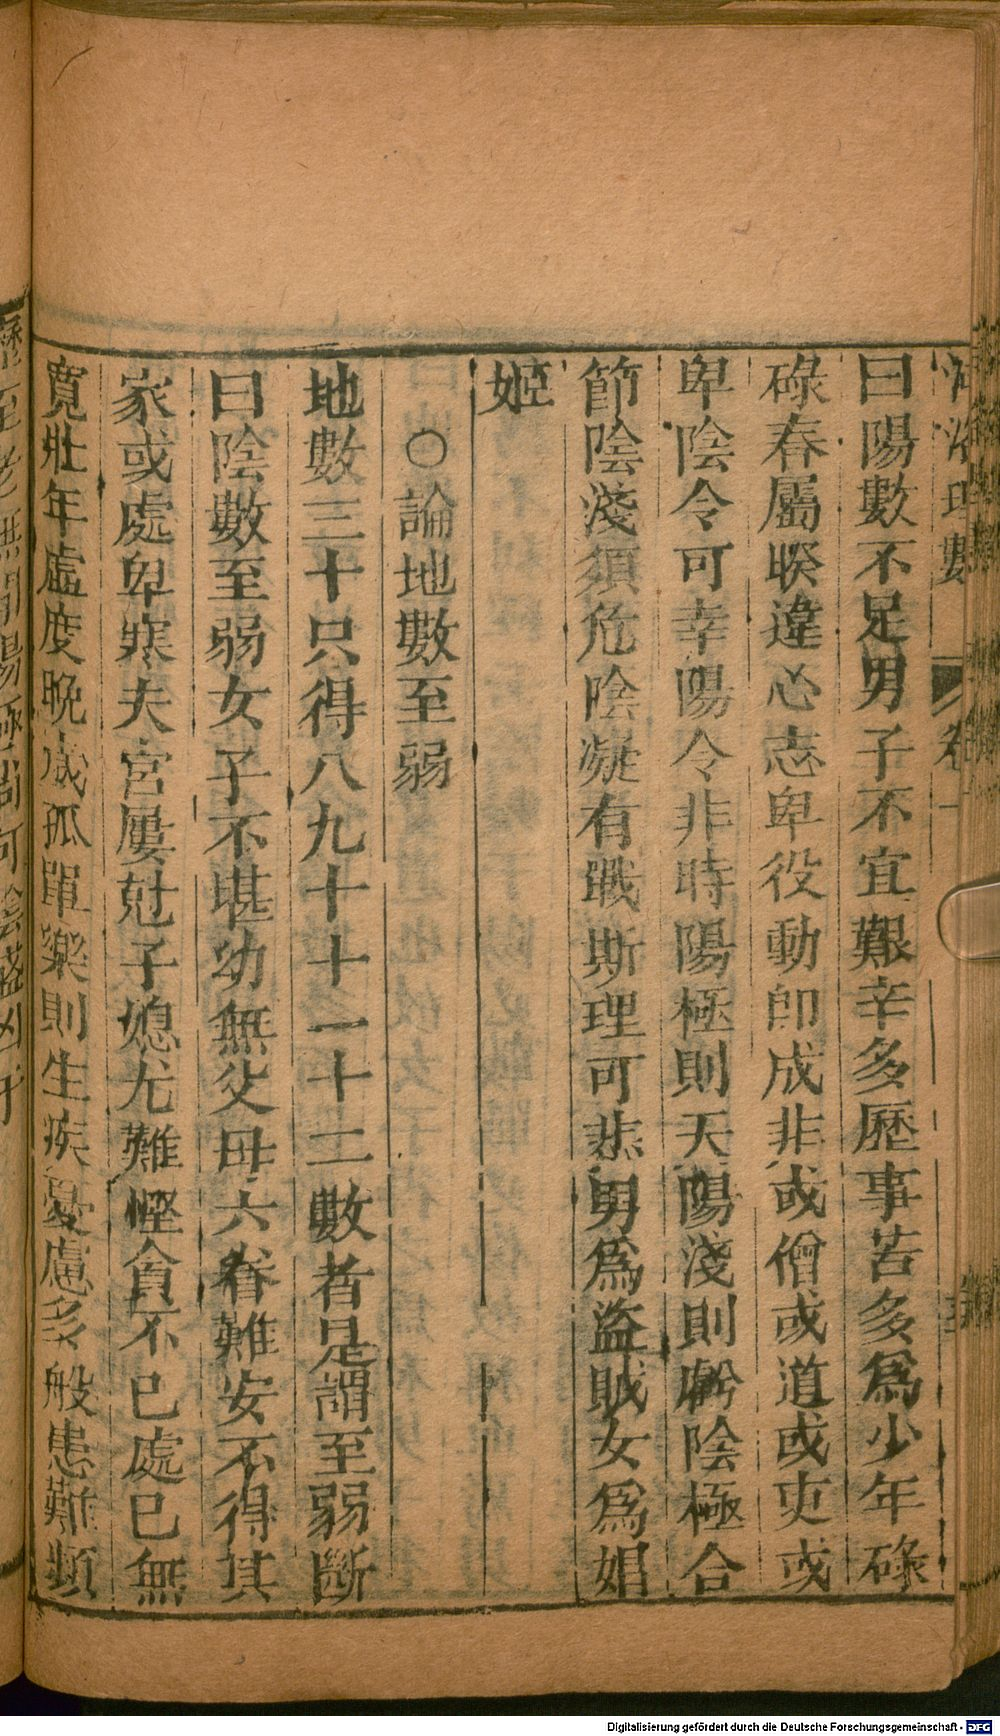 河洛理數 卷一
曰陽數不足男子不宜艱辛多歷事苦多爲少年碌
碌春屬睽違心志卑役動卽成非或僧或道或吏或
卑陰令可幸陽令非時陽極則夭陽淺則虧陰極合
節陰淺須危陰凝有戰斯理可悲男爲盜賊女爲娼
姬
○論地數至弱
地數三十只得八九十十一十二數者是謂至弱斷
曰陰數至弱女子不堪幼無父母六眷難安不得其
家或處卑寒夫宮屢尅子媳尤難慳貪不已處已無
寬壯年虛度晚歲孤單樂則生疾憂慮多般患難頻
Digitalisierung gefördert durch die Deutsche Forschungsgemeinschaft - DFG